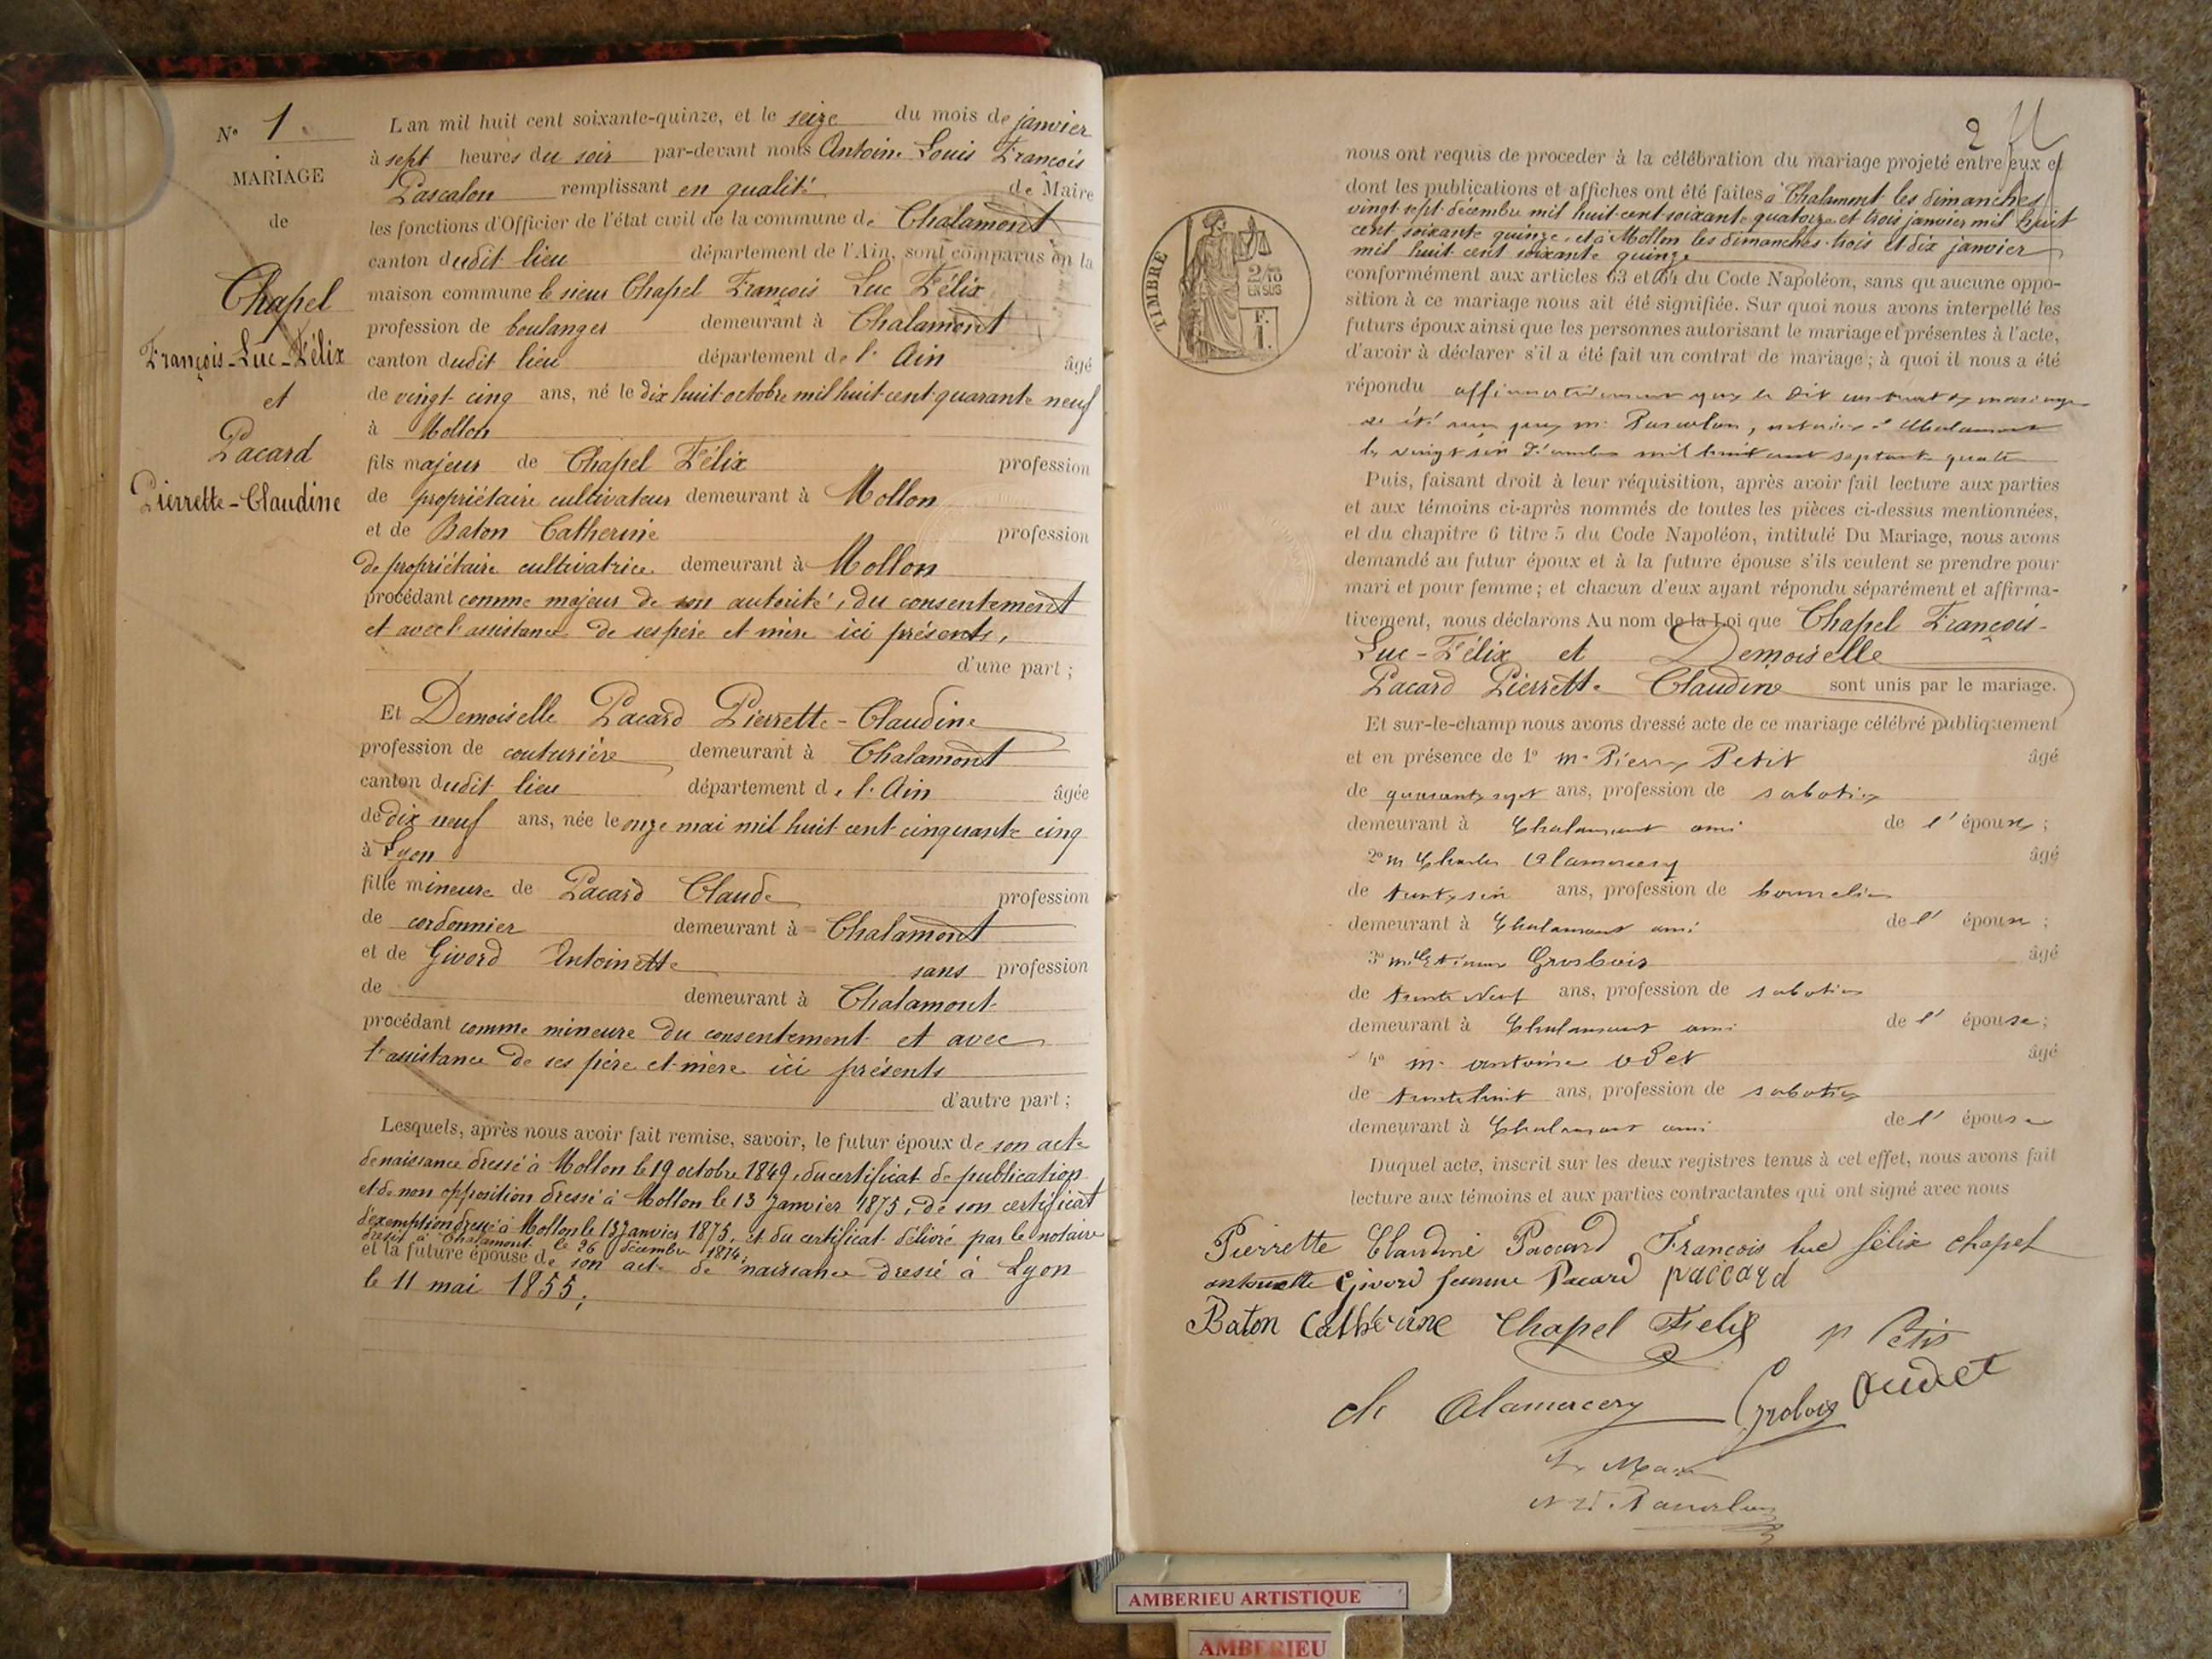 N° 1
MARIAGE
de
Chapel
François-Luc-Félix
et
Pacard
Pierrette-Claudine
L an mil huit cent soixante-quinze, et le seize du mois de janvier
à sept heures du soir par-devant nous Antoine Louis François
Pascalon remplissant en qualité de Maire
les fonctions d'Officier de l'état civil de la commune de Chalamont
canton dudit lieu département de l'Ain, sont comparus en la
maison commune le sieur Chapel François Luc Félix
profession de boulanger demeurant à Chalamont
canton dudit lieu département de l'Ain âgé
de vingt-cinq ans, né le dix huit octobre mil huit cent quarante neuf
à Mollon
fils majeur de Chapel Félix profession
de propriétaire cultivateur demeurant à Mollon
et de Baton Catherine profession
de propriétaire cultivatrice demeurant à Mollon
procédant comme majeur de son autorité, du consentement
et avec l'assistance de ses père et mère ici présents,
d'une part ;
Et Demoiselle Pacard Pierrette-Claudine
profession de couturière demeurant à Chalamont
canton dudit lieu département de l'Ain âgée
de dix neuf ans, née le onze mai mil huit cent cinquante cinq
à Lyon
fille mineure de Pacard Claude profession
de cordonnier demeurant à Chalamont
et de Givord Antoinette sans profession
de demeurant à Chalamont
procédant comme mineure du consentement et avec
l'assistance de ses père et mère ici présents
d'autre part ;
Lesquels, après nous avoir fait remise, savoir, le futur époux de son acte
de naissance dressé à Mollon le 19 octobre 1849, du certificat de publication
et de non opposition dressé à Mollon le 13 Janvier 1875, de son certificat
d'exemption dressé à Mollon le 13 Janvier 1875, et du certificat délivré par le notaire
dressé à Chalamont le 26 décembre 1874,
et la future épouse de son acte de naissance dressé à Lyon
le 11 mai 1855 ;
2
nous ont requis de proceder à la célébration du mariage projeté entre eux et
dont les publications et affiches ont été faites à Chalamont les dimanches
vingt-sept décembre mil huit cent soixante quatorze et trois janvier mil huit
cent soixante quinze, et à Mollon les dimanches trois et dix janvier
mil huit cent soixante quinze
conformément aux articles 63 et 64 du Code Napoléon, sans qu aucune oppo-
sition à ce mariage nous ait été signifiée. Sur quoi nous avons interpellé les
futurs époux ainsi que les personnes autorisant le mariage et présentes à l'acte,
d'avoir à déclarer s'il a été fait un contrat de mariage ; à quoi il nous a été
répondu affirmativement que le dit contrat de mariage
a été reçu par m. Pascalon, notaire à Chalamont
le vingt six décembre mil huit cent septante quatre
Puis, faisant droit à leur réquisition, après avoir fait lecture aux parties
et aux témoins ci-après nommés de toutes les pièces ci-dessus mentionnées,
et du chapitre 6 titre 5 du Code Napoléon, intitulé Du Mariage, nous avons
demandé au futur époux et à la future épouse s'ils veulent se prendre pour
mari et pour femme ; et chacun d'eux ayant répondu séparément et affirma-
tivement, nous déclarons Au nom de la Loi que Chapel François-
Luc-Félix et Demoiselle
Pacard Pierrette Claudine sont unis par le mariage.
Et sur-le-champ nous avons dressé acte de ce mariage célébré publiquement
et en présence de 1° m. Pierre Petit âgé
de quarante sept ans, profession de sabotier
demeurant à Chalamont ami de l'époux ;
2° m Charles Alamercery âgé
de trente six ans, profession de bourrelier
demeurant à Chalamont ami de l' époux ;
3° m. Etienne Grosbois âgé
de trente neuf ans, profession de sabotier
demeurant à Chalamont ami de l' épouse ;
4° m. antoine odet âgé
de trente huit ans, profession de sabotier
demeurant à Chalamont ami de l' épouse
Duquel acte, inscrit sur les deux registres tenus à cet effet, nous avons fait
lecture aux témoins et aux parties contractantes qui ont signé avec nous
Pierrette Claudine Paccard François luc félix chapel
antoinette Givord femme Pacard paccard
Baton Catherine Chapel Felix p Petit
ch Alamercery Grobois Oudet
Le Maire
Pascalon
TIMBRE
2/10
EN SUS
F.
1.
AMBERIEU ARTISTIQUE
AMBERIEU